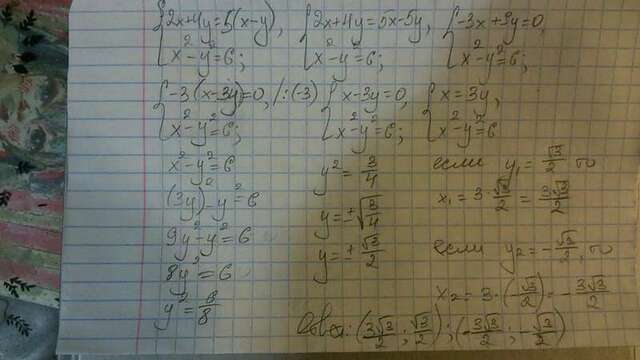 {2x+4y=5(x-y), {2x+4y=5x-5y, {-3x+9y=0,
{x²-y²=6; {x²-y²=6; {x²-y²=6;
{-3(x-3y)=0, /:(-3) {x-3y=0, {x=3y,
{x²-y²=6; {x²-y²=6; {x²-y²=6
x²-y²=6
(3y)²-y²=6
9y²-y²=6
8y²=6
y²=6/8
y²=3/4
y=±√(3/4)
y=±√3/2
если y₁=√3/2, то
x₁=3·√3/2=3√3/2
если y₂=-√3/2, то
x₂=3·(-√3/2)=-3√3/2
Ответ: (3√3/2; √3/2); (-3√3/2; -√3/2)